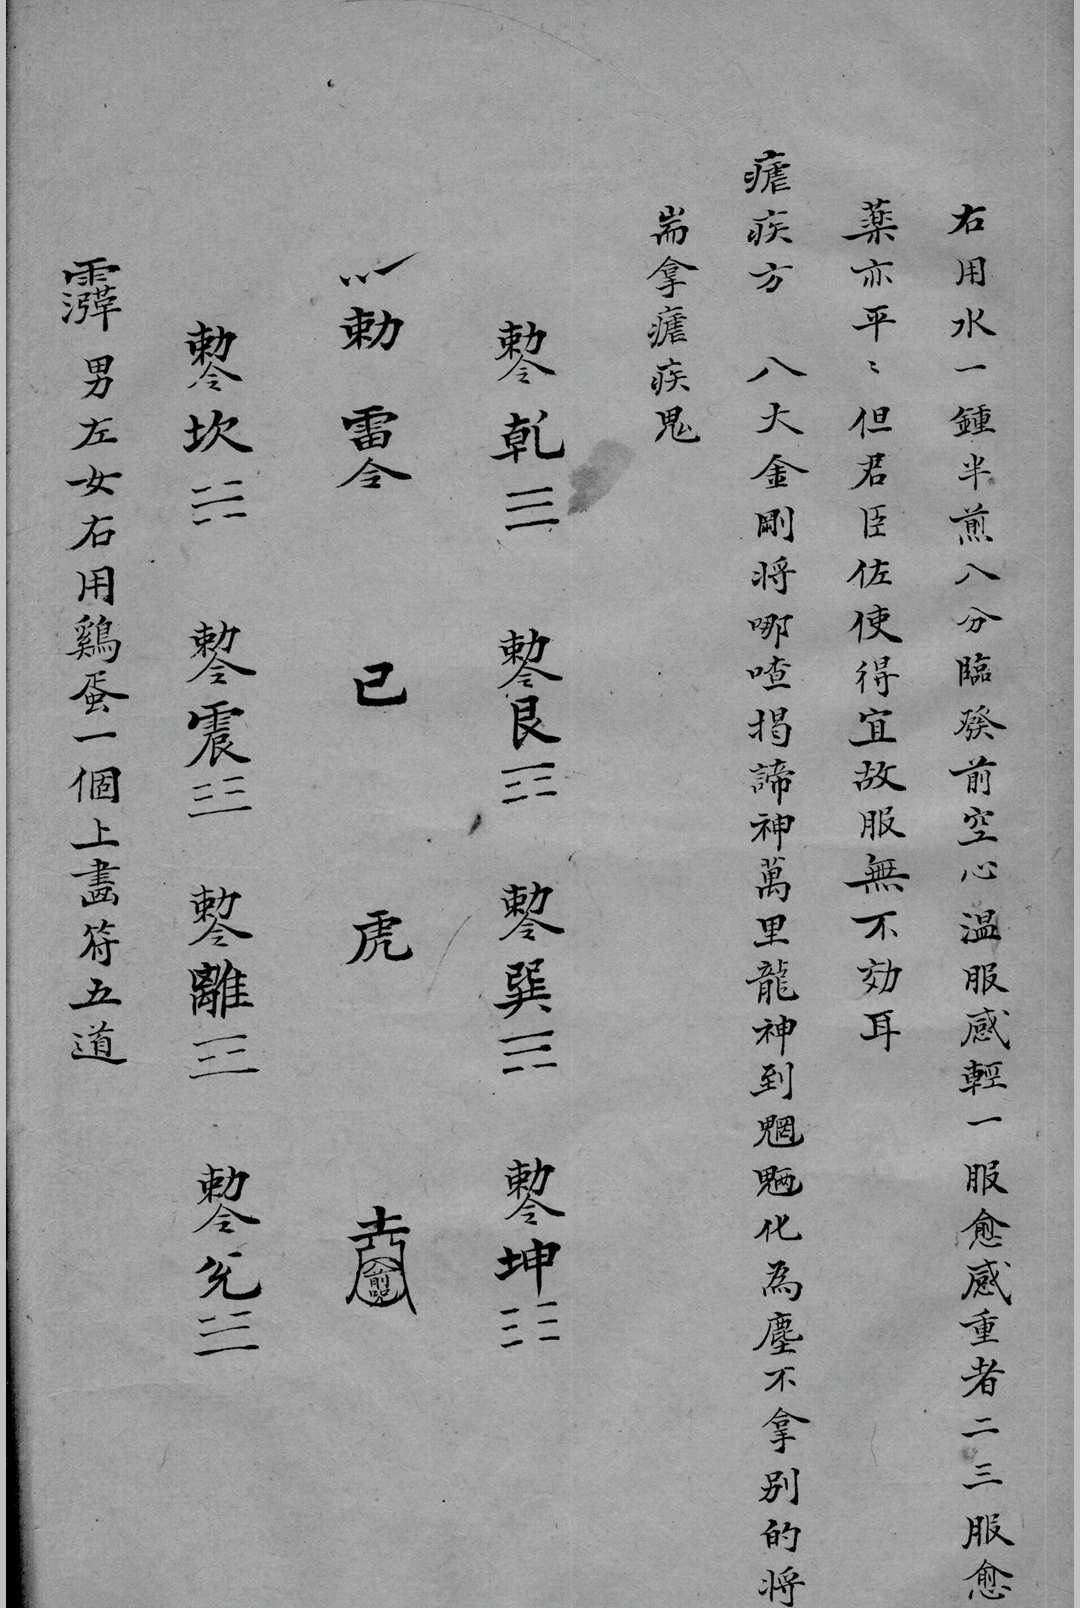 右用水一鍾半煎八分臨發前空心温服感輕一服愈感重者二三服愈
藥亦平〻但君臣佐使得宜故服無不効耳
瘧疾方　八大金剛將哪喳揭諦神萬里龍神到魍魎化為塵不拿别的將
耑拿瘧疾鬼
勅令乾☰　勅令艮☶　勅令巽☴　勅令坤☷
勅雷令　已　虎
勅令坎☵　勅令震☳　勅令離☲　勅令兊☱
男左女右用鷄蛋一個上畫符五道